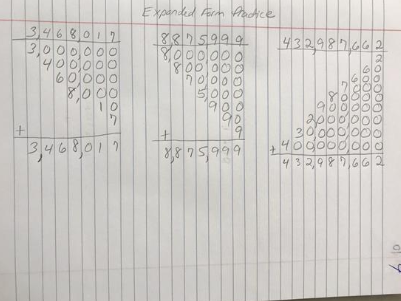 Expanded Form Practice
3,468,017
3,000,000
400,000
60,000
8,000
10
7
+
3,468,017
8,875,999
8,000,000
800,000
70,000
5,000
900
90
+ 9
8,875,999
432,987,662
2
60
600
7,000
80,000
900,000
2,000,000
30,000,000
+ 400,000,000
432,987,662